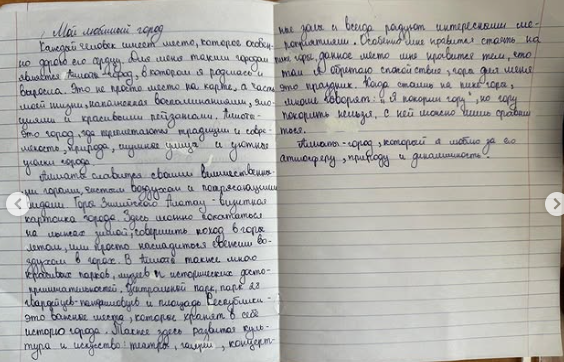 Мой любимый город
Каждый человек имеет место, которое особен-
но дорого его сердцу. Для меня таким городом
является Алматы - город, в котором я родилась и
выросла. Это не просто место на карте, а часть
моей жизни, наполненная воспоминаниями, эмо-
циями и красивыми пейзажами. Алматы -
это город, где сочетаются традиции и совре-
менность, природа, шумные улицы и уютные
уголки города.
Алматы славится своими величественны-
ми горами, чистым воздухом и потрясающими
видами. Горы Заилийского Алатау - визитная
карточка города. Здесь можно покататься
на лыжах зимой, совершить поход в горы
летом, или просто насладиться свежим во-
здухом в горах. В Алматы также много
красивых парков, музеев и исторических досто-
примечательностей. Центральный парк, парк 28
гвардейцев-панфиловцев и площадь Республики -
это важные места, которые хранят в себе
историю города. Также здесь развита куль-
тура и искусство: театры, галереи, концерт-
ные залы и всегда радуют интересными ме-
роприятиями. Особенно мне нравится стоять на
пике горы, данное место мне нравится тем, что
там я обретаю спокойствие, горы для меня
это праздник. Когда стоишь на пике горы,
многие говорят: "Я покорил гору", но гору
покорить нельзя, с ней можно лишь сравни-
ться.
Алматы - город, который я люблю за его
атмосферу, природу и динамичность.